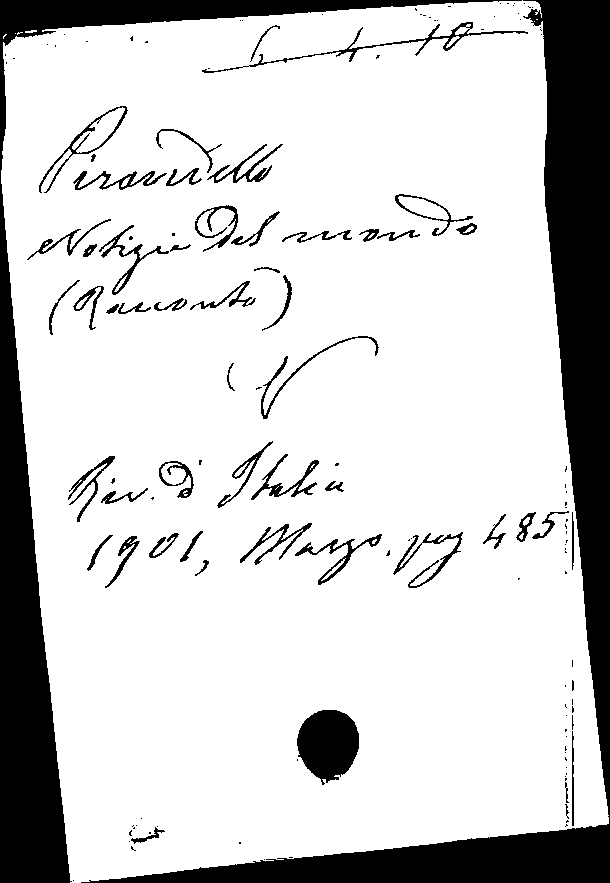 6. 4. 10
Pirandello
Notizie del mondo
(Racconto)
Riv. d'Italia
1901, Marzo. pag 485